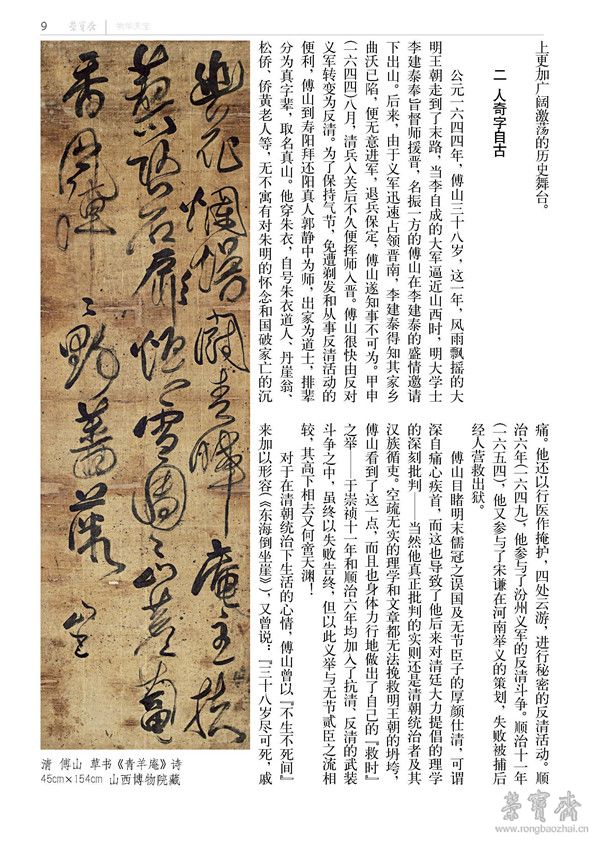 9 榮寶齋 | 物华天宝
上更加广阔激荡的历史舞台。
二 人奇字自古
公元一六四四年，傅山三十八岁，这一年，风雨飘摇的大
明王朝走到了末路，当李自成的大军逼近山西时，明大学士
李建泰奉旨督师援晋，名振一方的傅山在李建泰的盛情邀请
下出山。后来，由于义军迅速占领晋南，李建泰得知其家乡
曲沃已陷，便无意进军，退兵保定，傅山遂知事不可为。甲申
（一六四四）八月，清兵入关后不久便挥师入晋。傅山很快由反对
义军转变为反清。为了保持气节，免遭剃发和从事反清活动的
便利，傅山到寿阳拜还阳真人郭静中为师，出家为道士，排辈
分为真字辈，取名真山。他穿朱衣，自号朱衣道人、丹崖翁、
松侨、侨黄老人等，无不寓有对朱明的怀念和国破家亡的沉
痛。他还以行医作掩护，四处云游，进行秘密的反清活动。顺
治六年（一六四九），他参与了汾州义军的反清斗争。顺治十一年
（一六五四），他又参与了宋谦在河南举义的策划，失败被捕后
经人营救出狱。
傅山目睹明末儒冠之误国及无节臣子的厚颜仕清，可谓
深自痛心疾首，而这也导致了他后来对清廷大力提倡的理学
的深刻批判——当然他真正批判的实则还是清朝统治者及其
汉族循吏。空疏无实的理学和文章都无法挽救明王朝的坍垮，
傅山看到了这一点，而且也身体力行地做出了自己的『救时』
之举——于崇祯十一年和顺治六年均加入了抗清、反清的武装
斗争之中，虽终以失败告终，但以此义举与无节贰臣之流相
较，其高下相去又何啻天渊！
对于在清朝统治下生活的心情，傅山曾以『不生不死间』
来加以形容（《东海倒坐崖》），又曾说：『三十八岁尽可死，戚
清 傅山 草书《青羊庵》诗
45cm×154cm 山西博物院藏
榮寶齋
www.rongbaozhai.cn